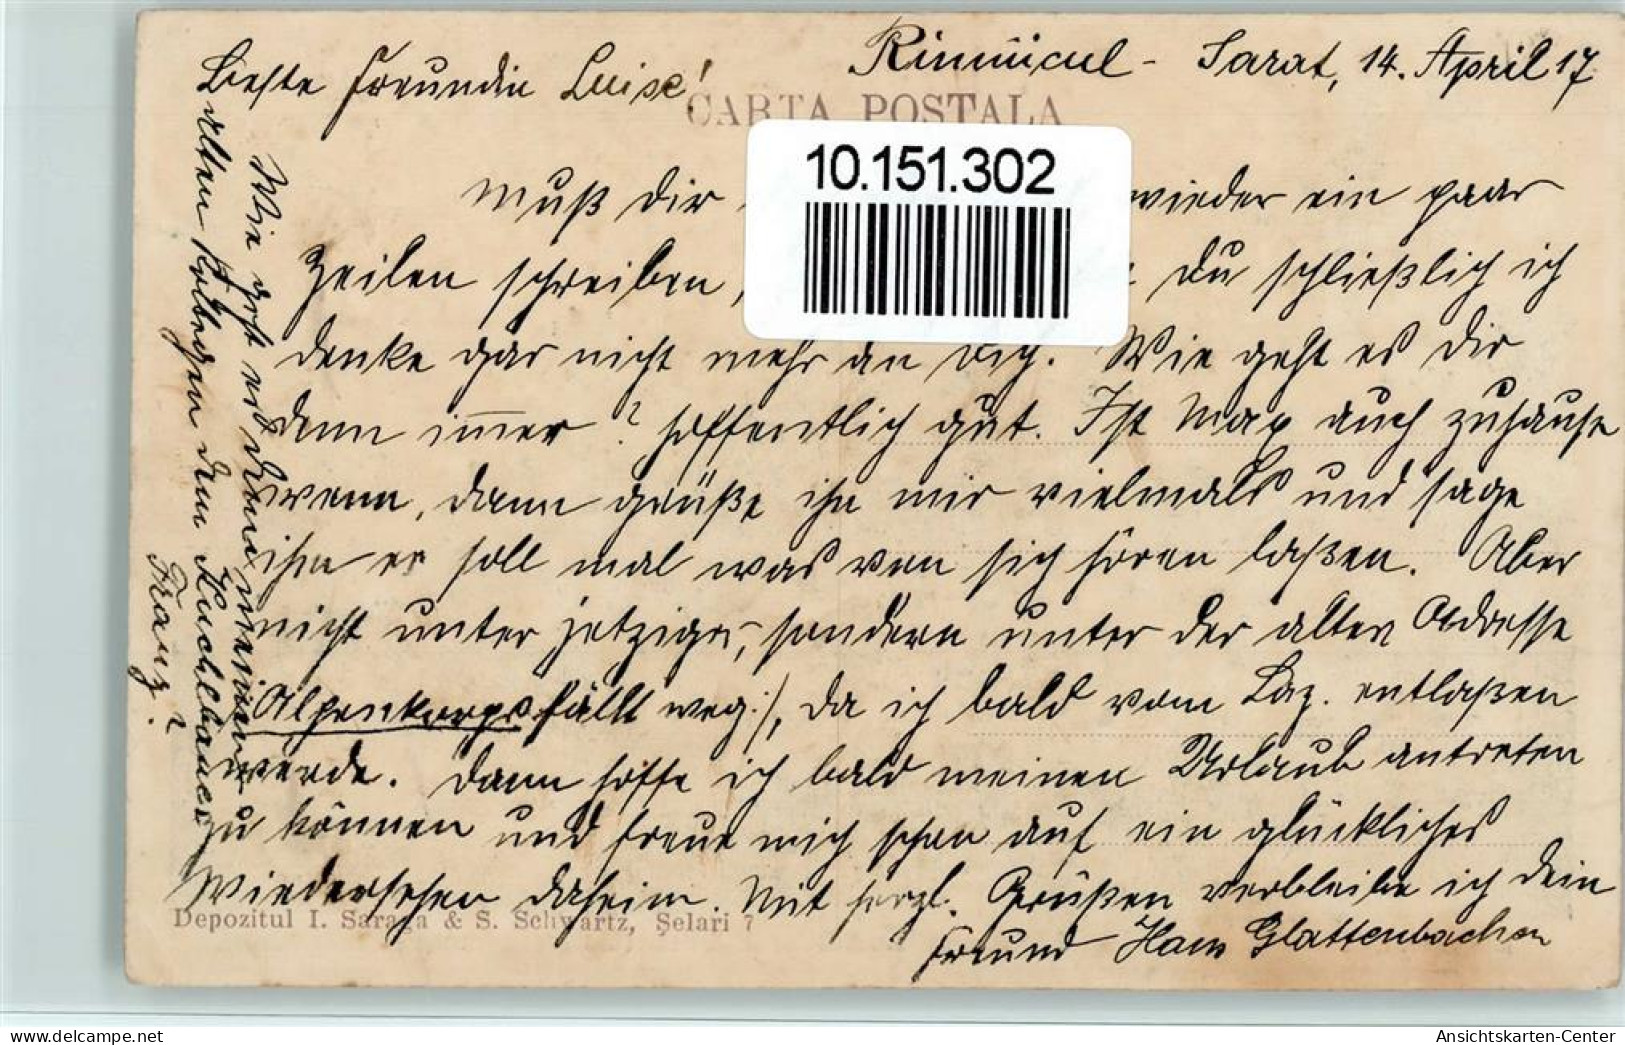 Rimnicul - Sarat, 14. April 17
Beste Freundin Luise!
CARTA POSTALA
10.151.302
muß dir wieder ein paar
Zeilen schreiben, du schließlich ich
denke gar nicht mehr an dich. Wie geht es dir
denn immer? hoffentlich gut. Ist Max auch zuhause
wenn, dann grüße ihn mir vielmals und sage
ihm er soll mal was von sich hören laßen. Aber
nicht unter jetziger, sondern unter der alten Adresse
Alpenkorps fällt weg:/, da ich bald vom Laz. entlaßen
werde. Dann hoffe ich bald meinen Urlaub antreten
zu können und freue mich schon auf ein glückliches
Wiedersehen daheim. Mit herzl. Grüßen verbleibe ich dein
Freund Hans Glattenbacher
Wie geht es denn meinem
alten Kollegen dem Huchlbauer
Franz?
Depozitul I. Saraga & S. Schwartz, Şelari 7
delcampe.net
Ansichtskarten-Center